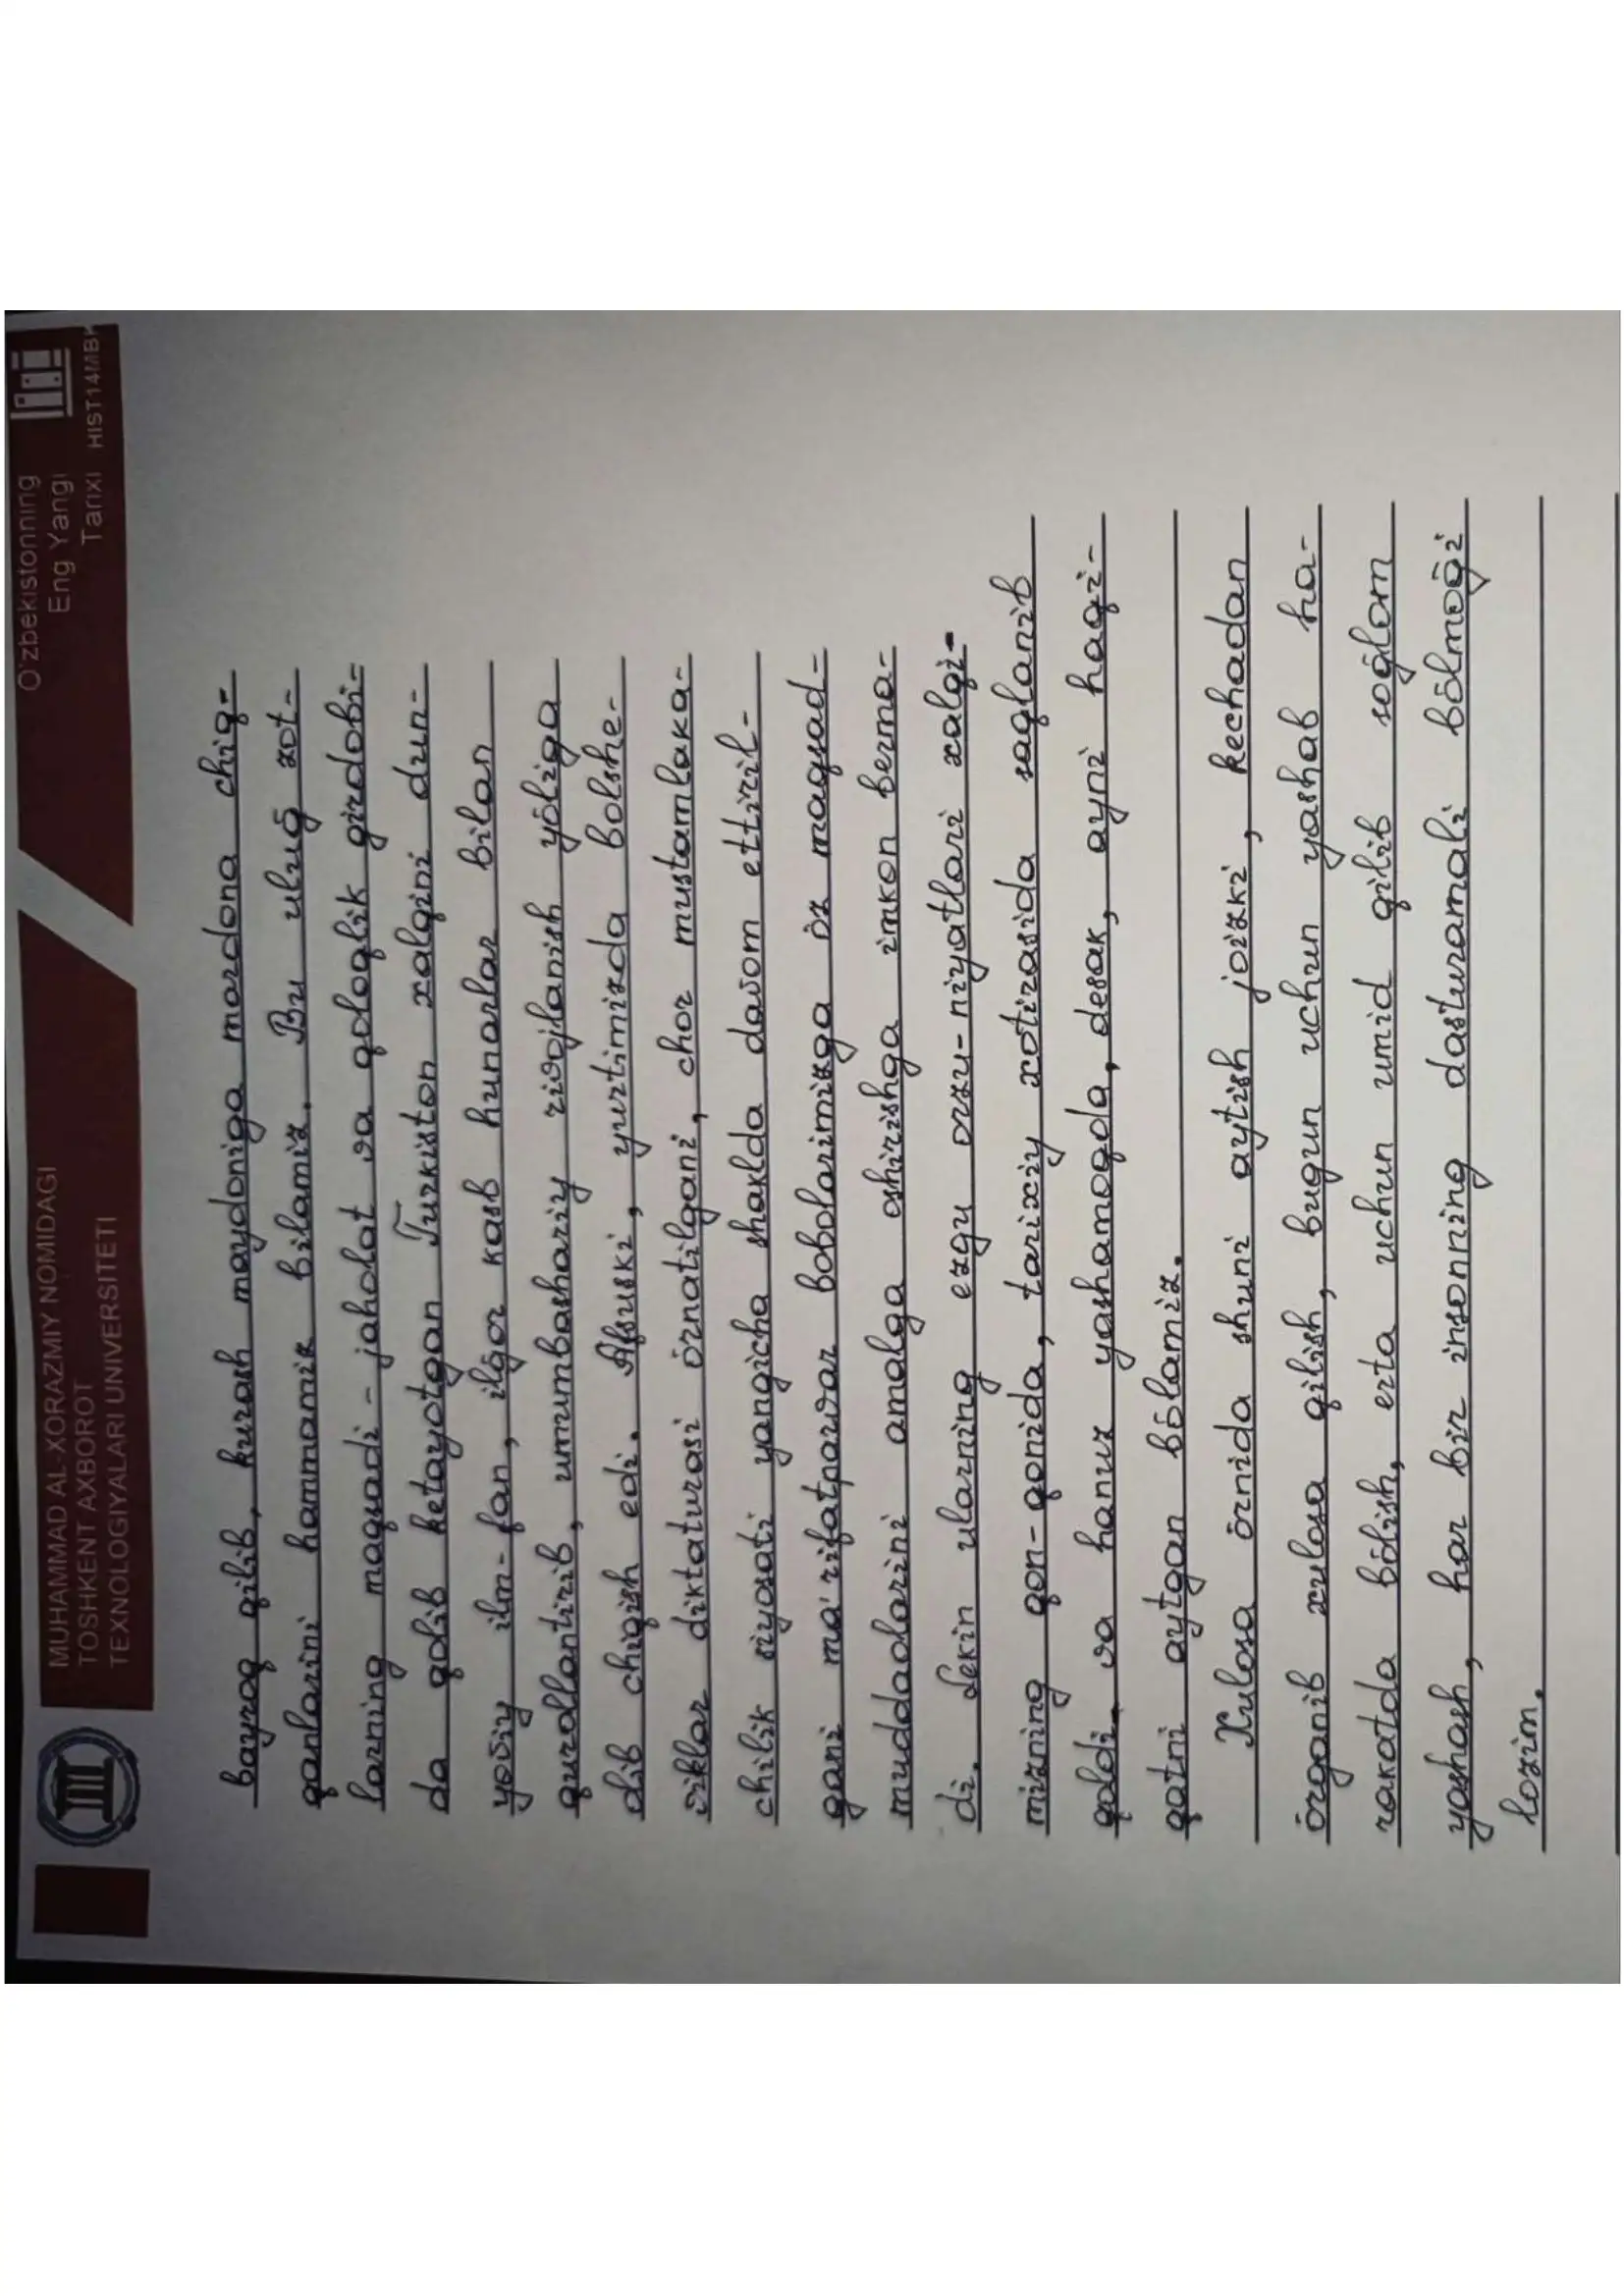 MUHAMMAD AL-XORAZMIY NOMIDAGI
TOSHKENT AXBOROT
TEXNOLOGIYALARI UNIVERSITETI
O'zbekistonning
Eng Yangi
Tarixi HIST14MBK
bayroq qilib, kurash maydoniga mardona chiq-
qanlarini hammamiz bilamiz. Bu ulug̃ zot-
larning maqsadi - jaholat va qoloqlik girdobi-
da qolib ketayotgan Turkiston xalqini dun-
yoviy ilm-fan, ilg̃or kasb hunarlar bilan
qurollantirib, umumbashariy rivojlanish yõliga
olib chiqish edi. Afsuski, yurtimizda bolshe-
viklar diktaturasi õrnatilgani, chor mustamlaka-
chilik siyosati yangicha shaklda davom ettiril-
gani ma'rifatparvar bobolarimizga õz maqsad-
muddaolarini amalga oshirishga imkon berma-
di. Lekin ularning ezgu orzu-niyatlari xalqi-
mizning qon-qonida, tarixiy xotirasida saqlanib
qoldi. va hanuz yashamoqda, desak, ayni haqi-
qatni aytgan bõlamiz.
Xulosa õrnida shuni aytish joizki, kechadan
õrganib xulosa qilish, bugun uchun yashab ha-
rakatda bõlish, erta uchun umid qilib sog̃lom
yashash, har bir insonning dasturamali bõlmog̃i
lozim.